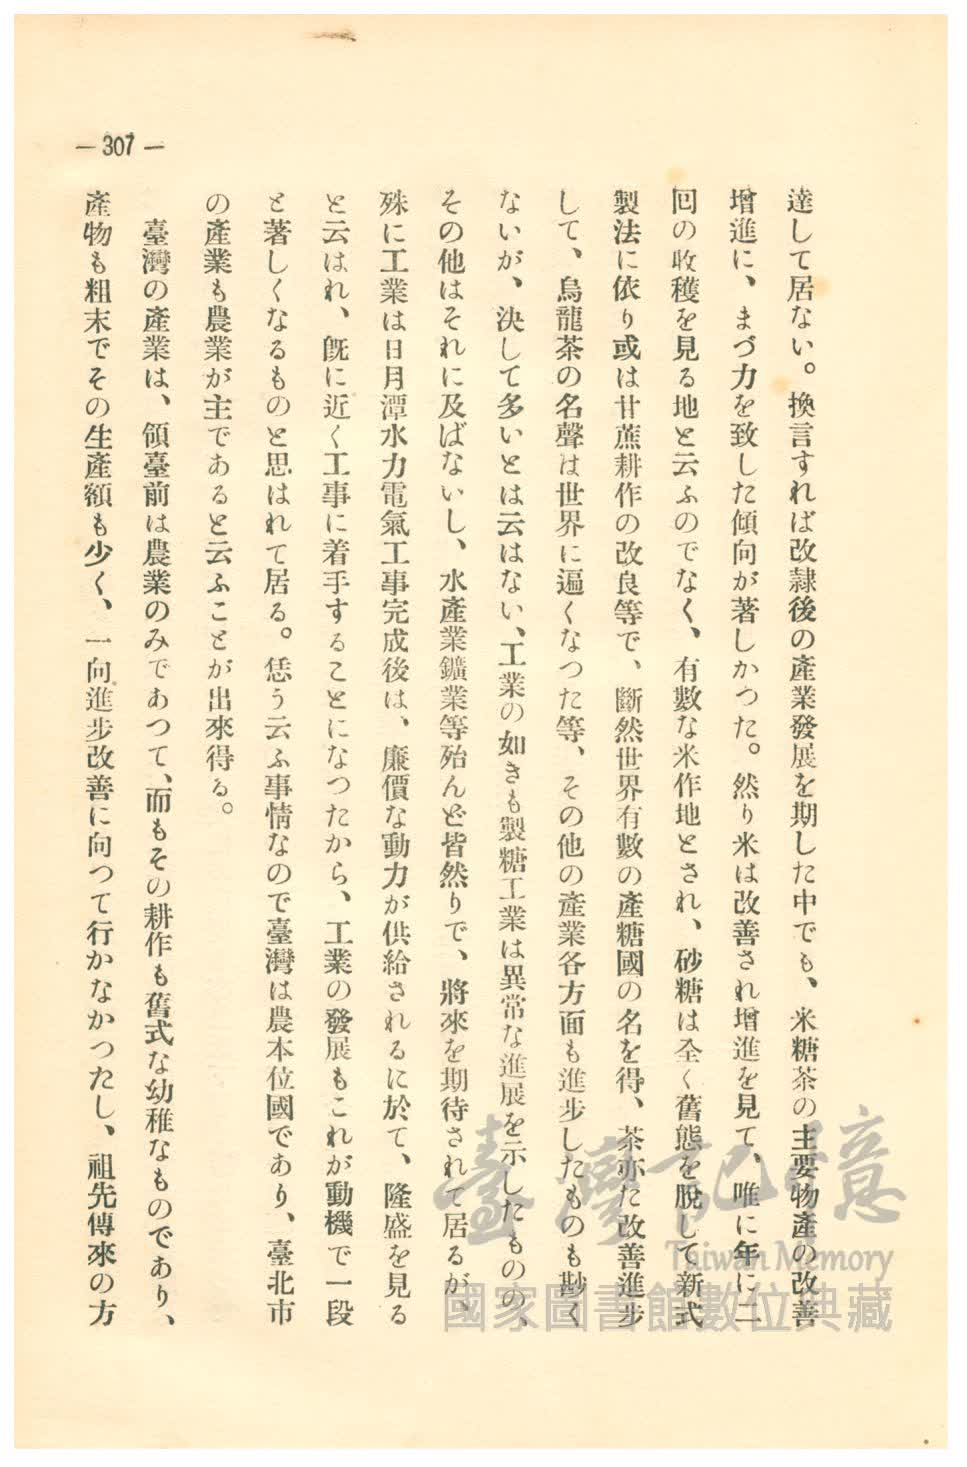 — 307 —
達して居ない。換言すれば改隷後の產業發展を期した中でも、米糖茶の主要物產の改善
增進に、まづ力を致した傾向が著しかつた。然り米は改善され增進を見て、唯に年に二
回の收穫を見る地と云ふのでなく、有數な米作地とされ、砂糖は全く舊態を脫して新式
製法に依り或は甘蔗耕作の改良等で、斷然世界有數の產糖國の名を得、茶亦た改善進步
して、烏龍茶の名聲は世界に遍くなつた等、その他の產業各方面も進步したものも尠く
ないが、決して多いとは云はない、工業の如きも製糖工業は異常な進展を示したものの、
その他はそれに及ばないし、水產業鑛業等殆んど皆然りで、將來を期待されて居るが、
殊に工業は日月潭水力電氣工事完成後は、廉價な動力が供給されるに於て、隆盛を見る
と云はれ、旣に近く工事に着手することになつたから、工業の發展もこれが動機で一段
と著しくなるものと思はれて居る。恁う云ふ事情なので臺灣は農本位國であり、臺北市
の產業も農業が主であると云ふことが出來得る。
臺灣の產業は、領臺前は農業のみであつて、而もその耕作も舊式な幼稚なものであり、
產物も粗末でその生產額も少く、一向進步改善に向つて行かなかつたし、祖先傳來の方
臺灣記憶
Taiwan Memory
國家圖書館數位典藏